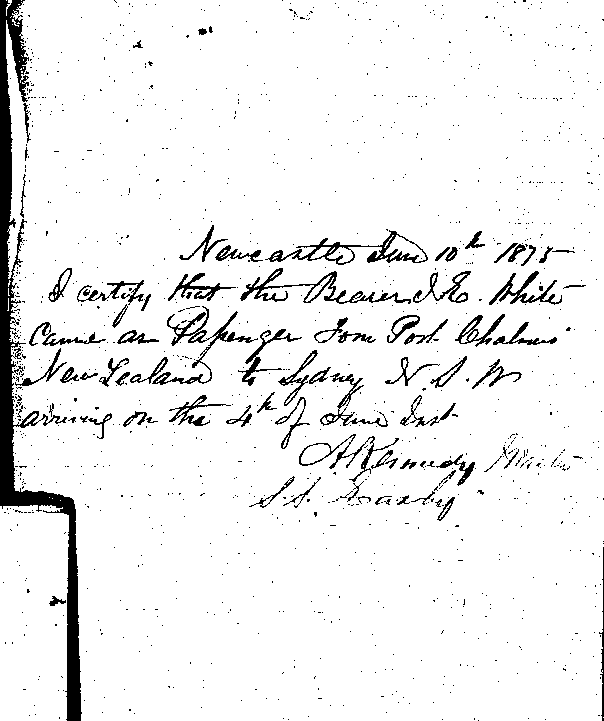 Newcastle June 10th 1875
I certify that the Bearer J. E. White
came as Passenger from Port Chalmers
New Zealand to Sydney N. S. W
arriving on the 4th of June Inst
A Kennedy Master
S. S.